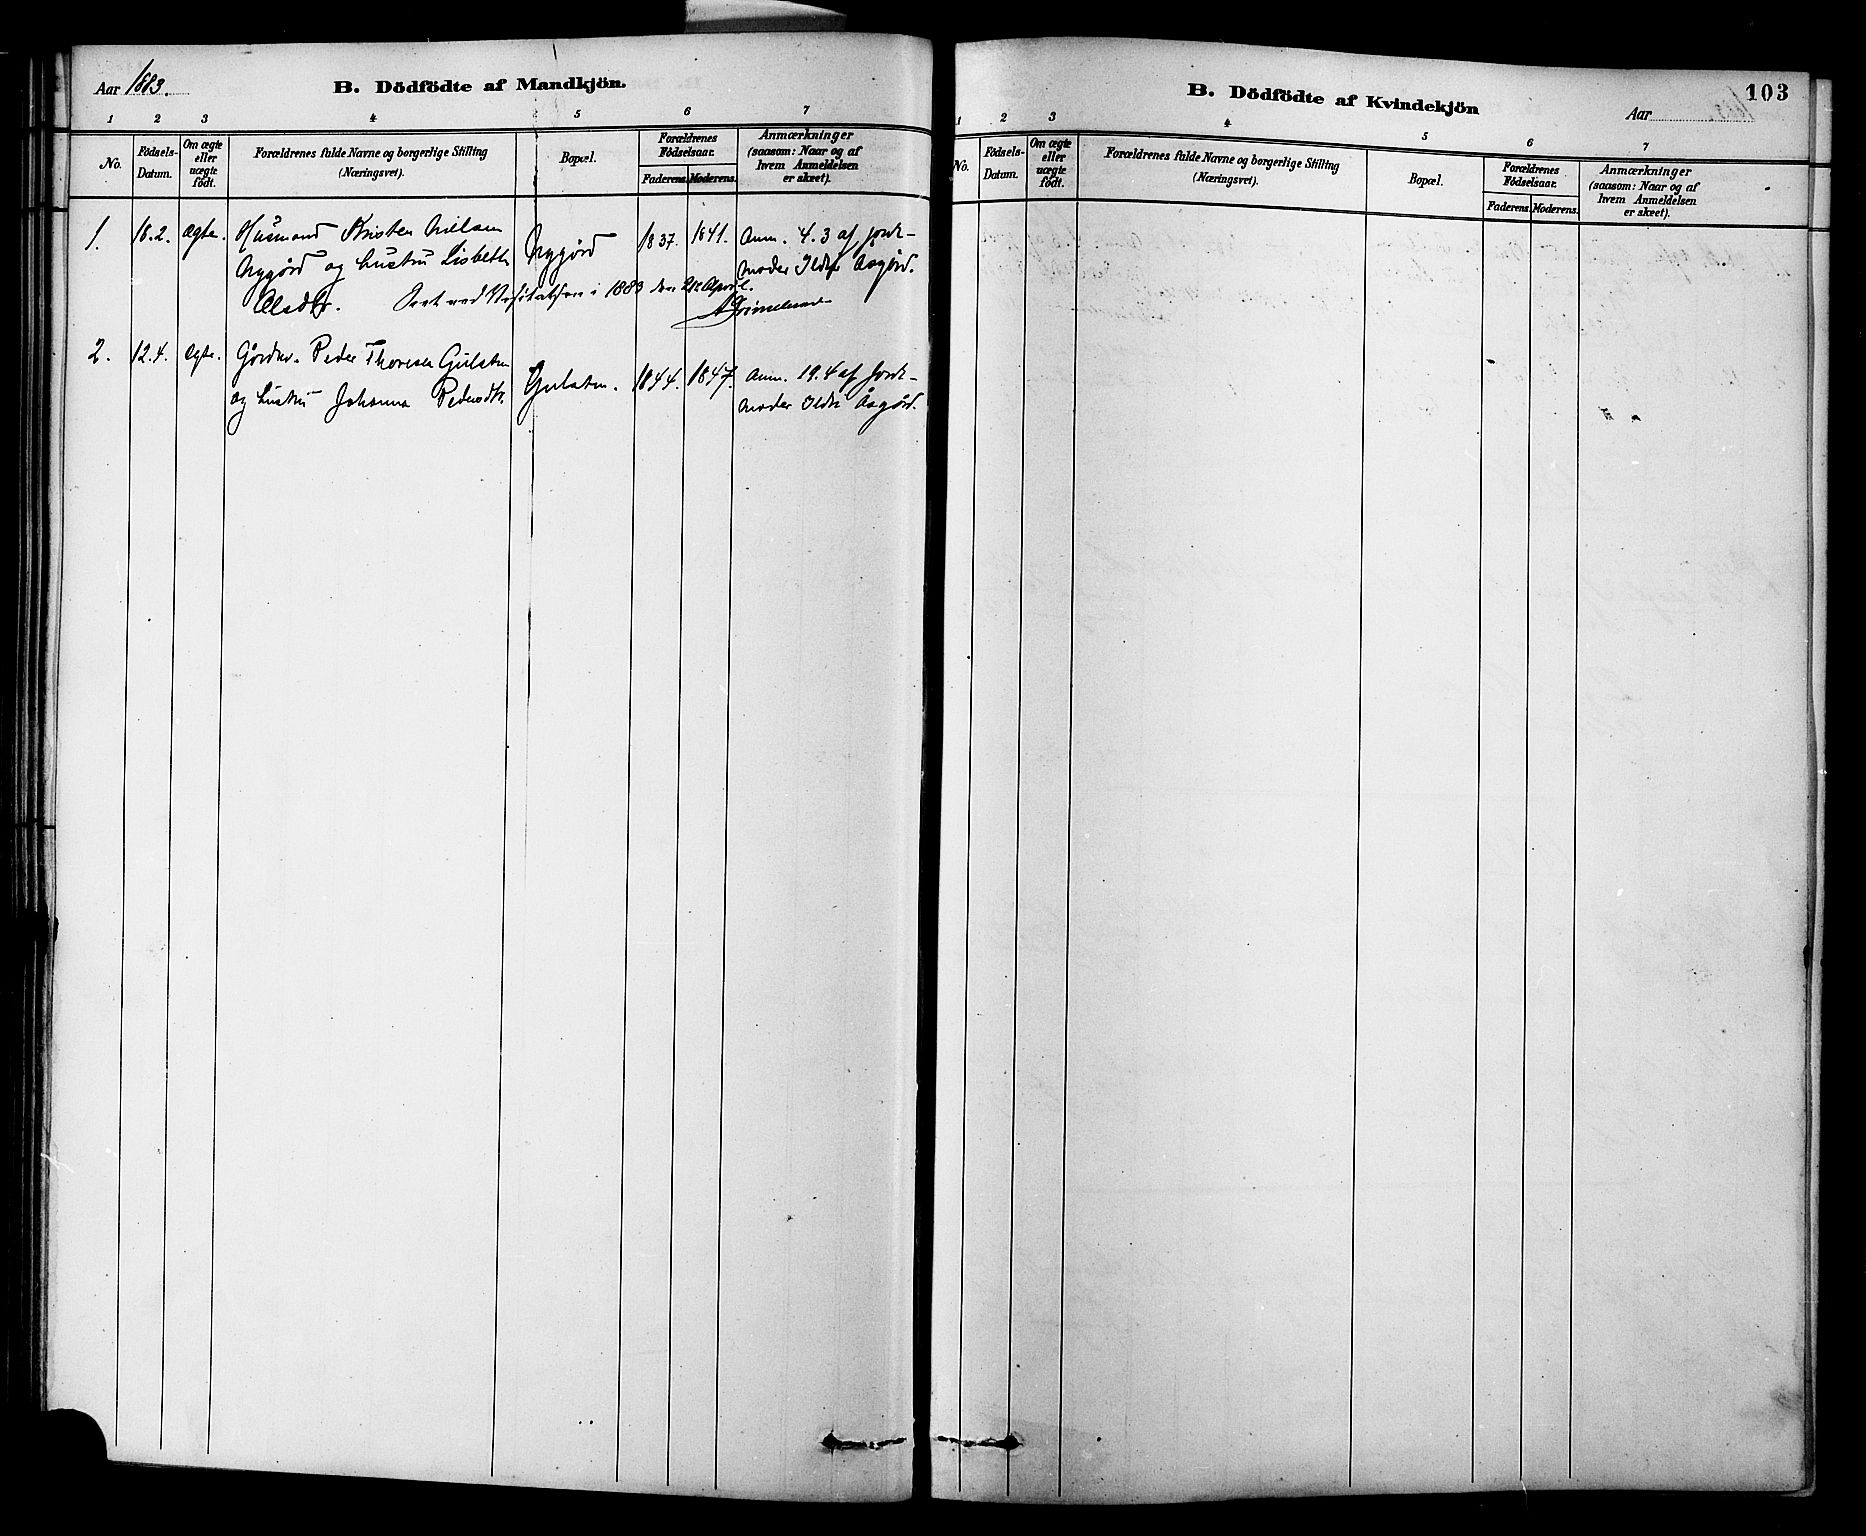 Aar 1883.
B. Dödfödte af Mandkjön.
1 2 3 4 5 6 7
No.
Födsels-Datum.
Om ægte eller uægte födt.
Forældrenes fulde Navne og borgerlige Stilling (Næringsvei).
Bopæl.
Forældrenes Födselsaar.
Faderens. Moderens.
Anmærkninger (saasom: Naar og af hvem Anmeldelsen er skeet).
1. 18.2. ægte. Husmand Kristen Nielsen Nygård 1837. 1841. Anm. 4.3 af Jorde-
Nygård og hustru Lisbeth moder Ildri Aasgård.
Olsdtr. Seet ved Visitatsen i 1883 den 21de April.
AGrimelund
2. 12.4. ægte. Gårdbr. Peder Thoresen Gulsten Gulsten. 1844. 1847. Anm. 19.4 af Jorde-
og hustru Johanna Pedersdtr. moder Ildri Åsgård.
B. Dödfödte af Kvindekjön
Aar
103
1 2 3 4 5 6 7
No.
Födsels-Datum.
Om ægte eller uægte födt.
Forældrenes fulde Navne og borgerlige Stilling (Næringsvei).
Bopæl.
Forældrenes Födselsaar.
Faderens. Moderens.
Anmærkninger (saasom: Naar og af hvem Anmeldelsen er skeet).